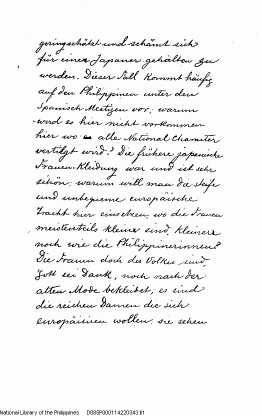 geringschätzt und schämt sich
für einen Japaner gehalten zu
werden. Dieser Fall kommt häufig
auf den Philippinen unter den
Spanisch Mestizen vor; warum
wird es hier nicht vorkommen
hier wo alle National Charakter
vertilgt wird? Die frühere japanische
Frauen-Kleidung war und ist sehr
schön, warum will man die steife
und unbequeme europäische
Tracht hier einsetzen, wo die Frauen
meistenteils kleine sind, kleiner
noch wie die Philippinerinnen?
Die Frauen doch des Volkes sind,
Gott sei Dank, noch nach der
alten Mode bekleidet; es sind
die reichen Damen die sich
europäisiren wollen. sie sehen
National Library of the Philippines